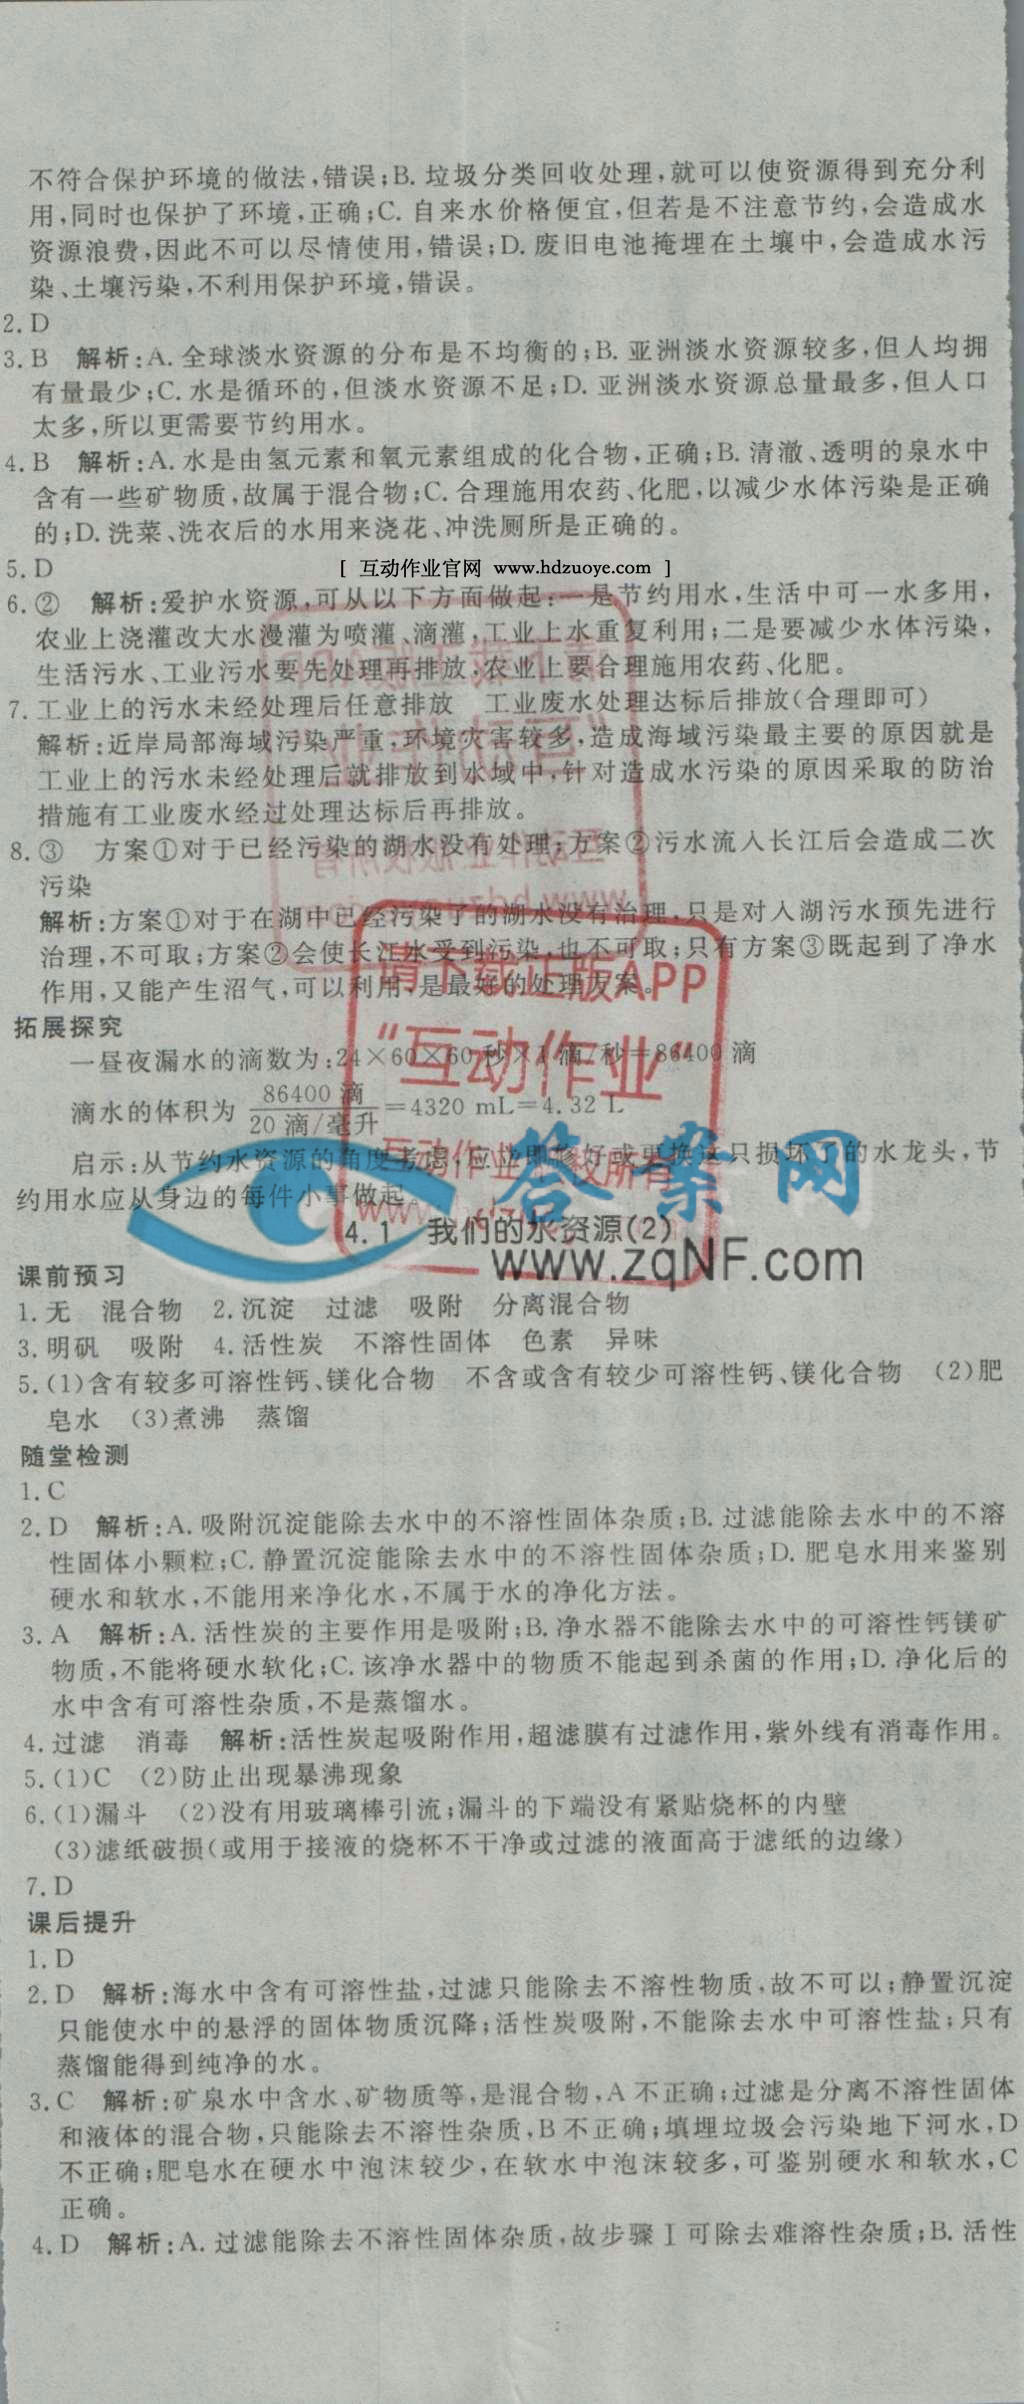 不符合保护环境的做法,错误;B. 垃圾分类回收处理,就可以使资源得到充分利
用,同时也保护了环境,正确;C. 自来水价格便宜,但若是不注意节约,会造成水
资源浪费,因此不可以尽情使用,错误;D. 废旧电池掩埋在土壤中,会造成水污
染、土壤污染,不利用保护环境,错误。
2. D
3. B 解析:A. 全球淡水资源的分布是不均衡的;B. 亚洲淡水资源较多,但人均拥
有量最少;C. 水是循环的,但淡水资源不足;D. 亚洲淡水资源总量最多,但人口
太多,所以更需要节约用水。
4. B 解析:A. 水是由氢元素和氧元素组成的化合物,正确;B. 清澈、透明的泉水中
含有一些矿物质,故属于混合物;C. 合理施用农药、化肥,以减少水体污染是正确
的;D. 洗菜、洗衣后的水用来浇花、冲洗厕所是正确的。
5. D
[ 互动作业官网 www.hdzuoye.com ]
6. ② 解析:爱护水资源,可从以下方面做起:一是节约用水,生活中可一水多用,
农业上浇灌改大水漫灌为喷灌、滴灌,工业上水重复利用;二是要减少水体污染,
生活污水、工业污水要先处理再排放,农业上要合理施用农药、化肥。
7. 工业上的污水未经处理后任意排放 工业废水处理达标后排放(合理即可)
解析:近岸局部海域污染严重,环境灾害较多,造成海域污染最主要的原因就是
工业上的污水未经处理后就排放到水域中,针对造成水污染的原因采取的防治
措施有工业废水经过处理达标后再排放。
8. ③ 方案①对于已经污染的湖水没有处理;方案②污水流入长江后会造成二次
污染
解析:方案①对于在湖中已经污染了的湖水没有治理,只是对入湖污水预先进行
治理,不可取;方案②会使长江水受到污染,也不可取;只有方案③既起到了净水
作用,又能产生沼气,可以利用,是最好的处理方案。
请下载正版APP
拓展探究
“互动作业“
一昼夜漏水的滴数为:24×60×60 秒×1 滴/秒=86400 滴
滴水的体积为 86400 滴/20 滴/毫升=4320 mL=4.32 L
互动作业 版权所有
答案网
启示:从节约水资源的角度考虑,应立即修好或更换这只损坏了的水龙头,节
约用水应从身边的每件小事做起。
4.1 我们的水资源(2)
www.zqNF.com
课前预习
1. 无 混合物 2. 沉淀 过滤 吸附 分离混合物
3. 明矾 吸附 4. 活性炭 不溶性固体 色素 异味
5. (1)含有较多可溶性钙、镁化合物 不含或含有较少可溶性钙、镁化合物 (2)肥
皂水 (3)煮沸 蒸馏
随堂检测
1. C
2. D 解析:A. 吸附沉淀能除去水中的不溶性固体杂质;B. 过滤能除去水中的不溶
性固体小颗粒;C. 静置沉淀能除去水中的不溶性固体杂质;D. 肥皂水用来鉴别
硬水和软水,不能用来净化水,不属于水的净化方法。
3. A 解析:A. 活性炭的主要作用是吸附;B. 净水器不能除去水中的可溶性钙镁矿
物质,不能将硬水软化;C. 该净水器中的物质不能起到杀菌的作用;D. 净化后的
水中含有可溶性杂质,不是蒸馏水。
4. 过滤 消毒 解析:活性炭起吸附作用,超滤膜有过滤作用,紫外线有消毒作用。
5. (1)C (2)防止出现暴沸现象
6. (1)漏斗 (2)没有用玻璃棒引流;漏斗的下端没有紧贴烧杯的内壁
(3)滤纸破损(或用于接液的烧杯不干净或过滤的液面高于滤纸的边缘)
7. D
课后提升
1. D
2. D 解析:海水中含有可溶性盐,过滤只能除去不溶性物质,故不可以;静置沉淀
只能使水中的悬浮的固体物质沉降;活性炭吸附,不能除去水中可溶性盐;只有
蒸馏能得到纯净的水。
3. C 解析:矿泉水中含水、矿物质等,是混合物,A 不正确;过滤是分离不溶性固体
和液体的混合物,只能除去不溶性杂质,B 不正确;填埋垃圾会污染地下河水,D
不正确;肥皂水在硬水中泡沫较少,在软水中泡沫较多,可鉴别硬水和软水,C
正确。
4. D 解析:A. 过滤能除去不溶性固体杂质,故步骤Ⅰ可除去难溶性杂质;B. 活性